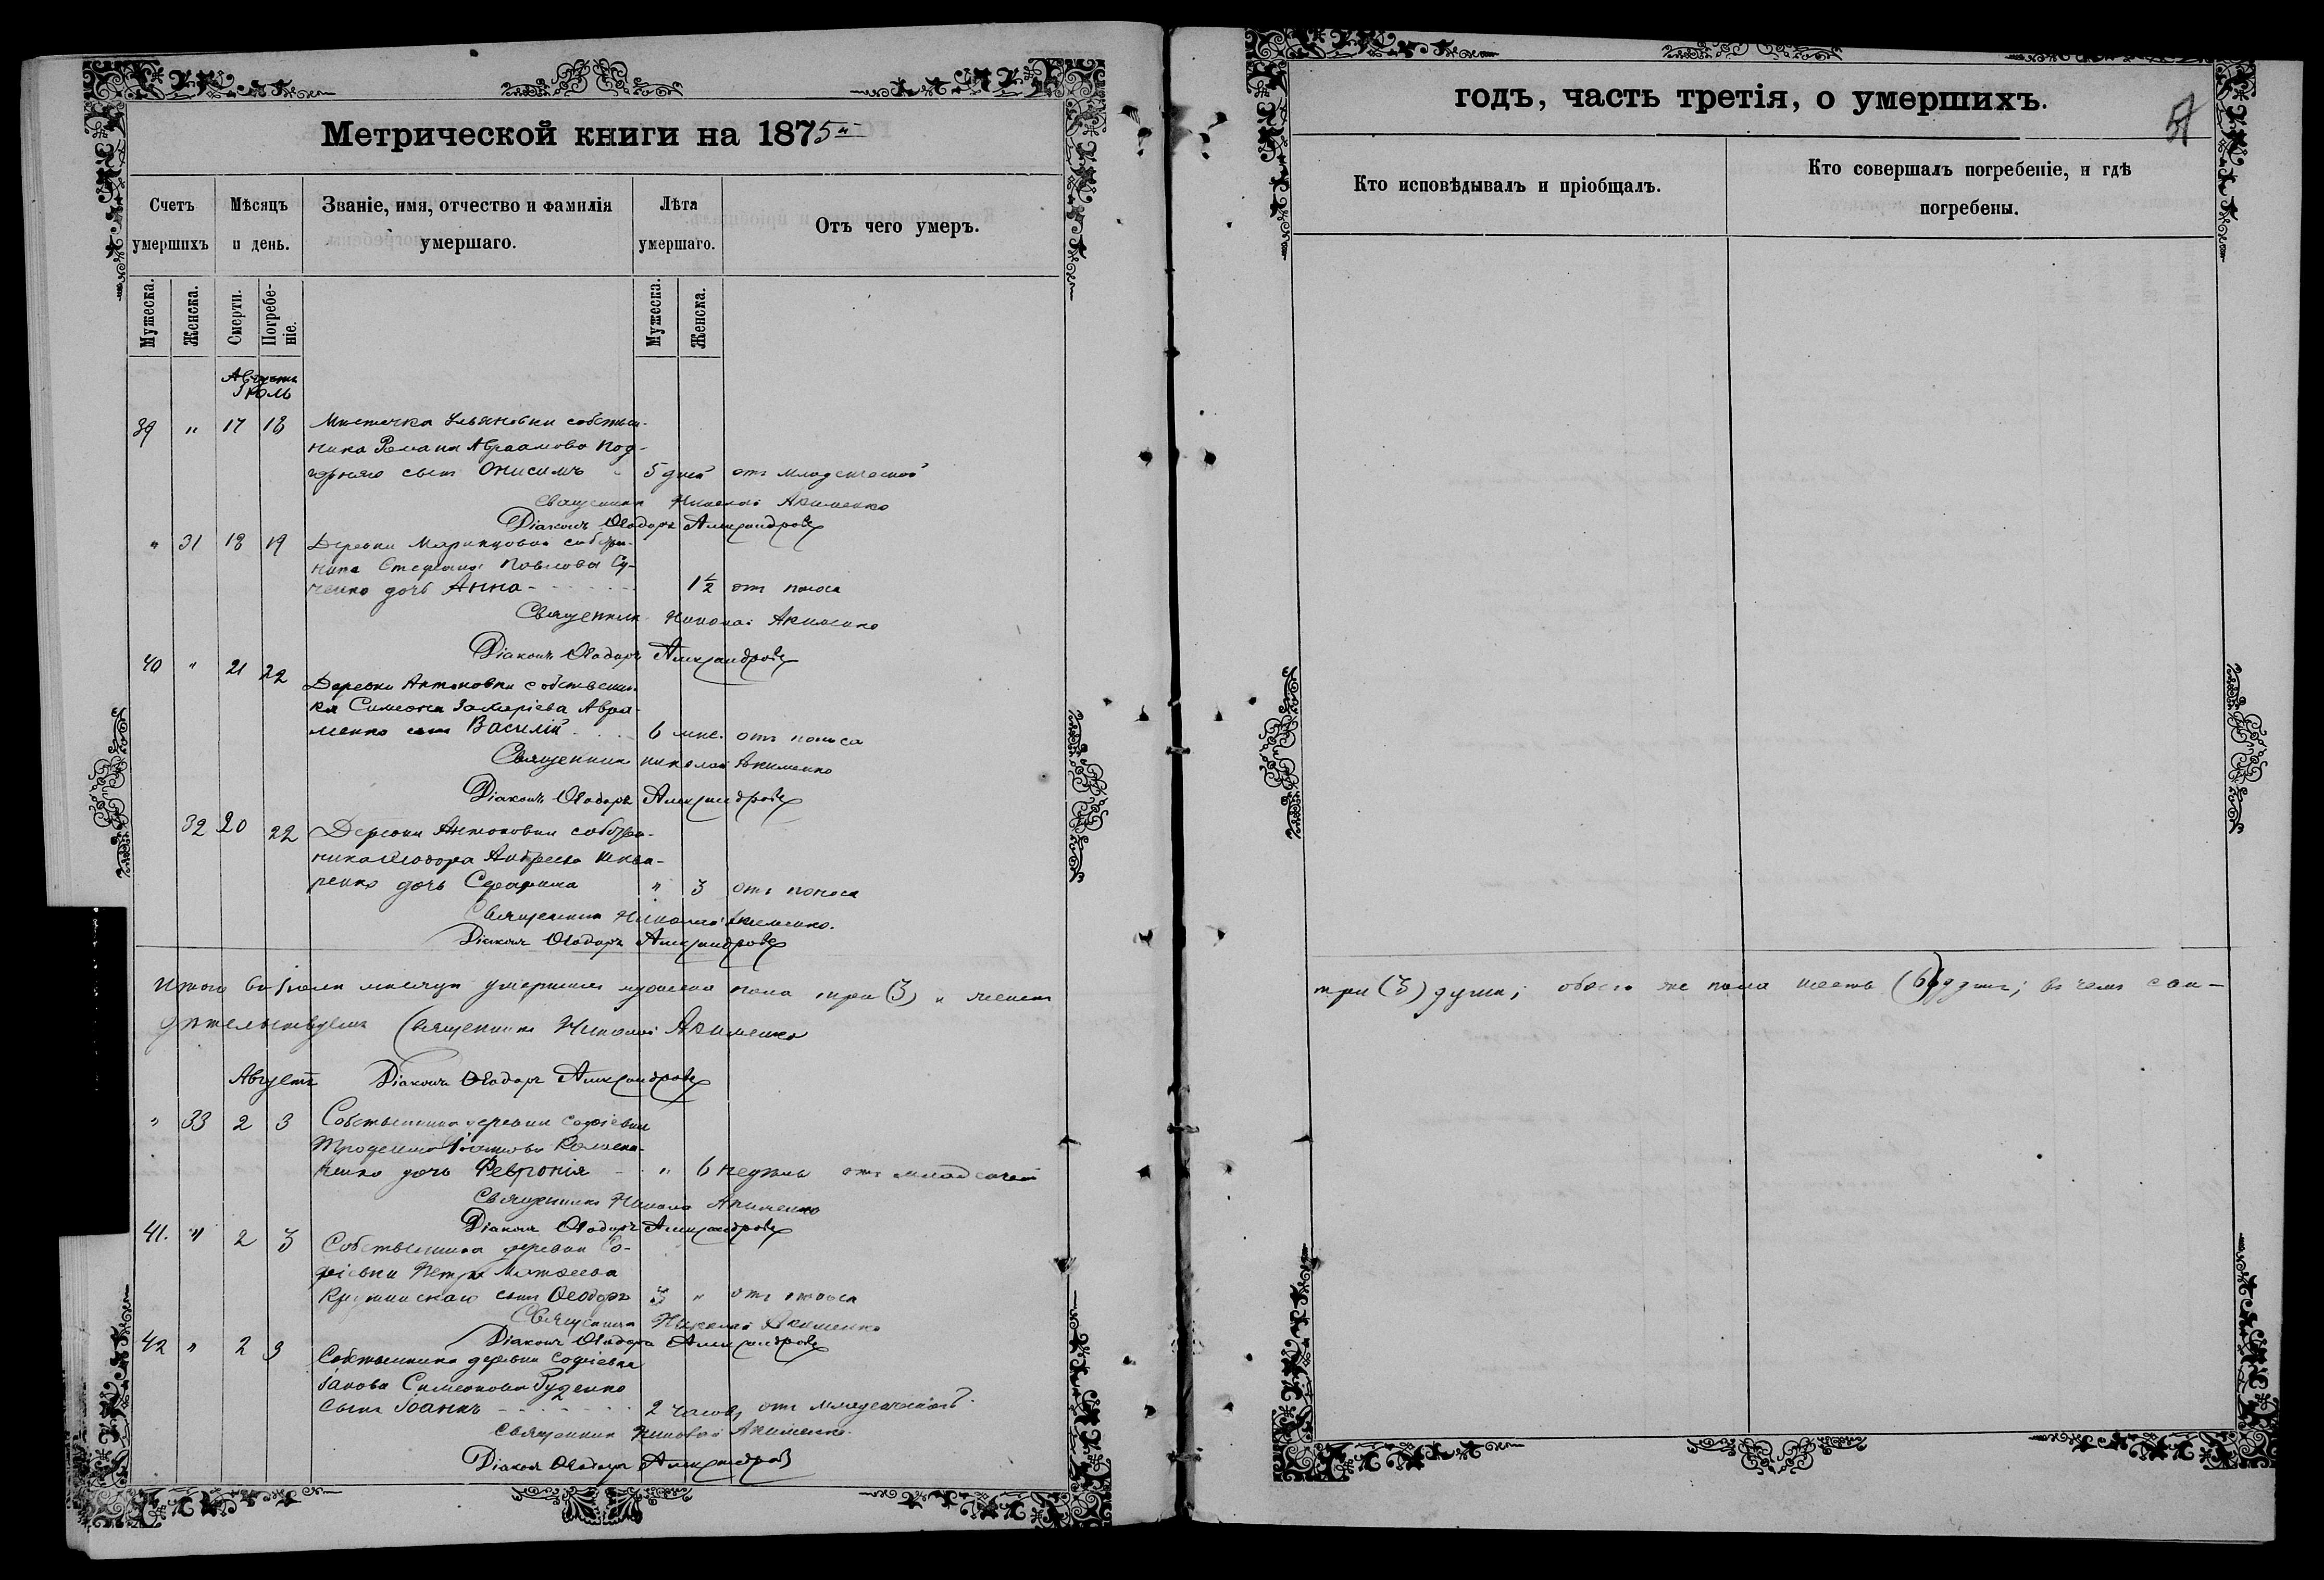 Метрической книги на 1875й
Счетъ умершихъ
Мѣсяцъ и день.
Званіе, имя, отчество и фамилія умершаго.
Лѣта умершаго.
Отъ чего умеръ.
Мужеска.
Женска.
Смерти.
Погребе-
ніе.
Мужеска.
Женска.
Августъ
Іюль
39 " 17 18 Мѣстечка Ульяновки собствен-
ника Романа Авраамова Под-
сынъ Онисимъ 5 дней отъ младенческой
Священникъ Николай Акименко
Діаконъ Ѳеодоръ Александровъ
" 31 18 19 Деревни собствен-
ника Стефана Павлова Су-
ченко дочь Анна 1½ отъ поноса
Священникъ Николай Акименко
Діаконъ Ѳеодоръ Александровъ
40 " 21 22 Деревни Антоновки собственни-
ка Симеона Захаріева Авра-
менко сынъ Василій 6 мѣс. отъ поноса
Священникъ Николай Акименко
Діаконъ Ѳеодоръ Александровъ
32 20 22 Деревни Антоновки собствен-
ника Ѳеодора Андреева Шква-
ренко дочь Серафима " 3 отъ поноса
Священникъ Николай Акименко.
Діаконъ Ѳеодоръ Александровъ
Итого въ Іюлѣ мѣсяцѣ умершихъ мужеска пола три (3) и женска
дѣтельствуемъ Священникъ Николай Акименко
Августъ Діаконъ Ѳеодоръ Александровъ
" 33 2 3 Собственника деревни Софіевки
Іоанова
ченко дочь Февронія " 6 недѣль отъ младенчес
Священникъ Николай Акименко
Діаконъ Ѳеодоръ Александровъ
41. " 2 3 Собственника деревни Со-
фіевки Петра Матѳеева
сынъ Ѳеодоръ 3 " отъ поноса
Священникъ Николай Акименко
Діаконъ Ѳеодоръ Александровъ
42 " 2 3 Собственника деревни Софіевки
Іакова Симеонова Руденко
сынъ Іоаннъ 2 часовъ отъ младенческой.
Священникъ Николай Акименко.
Діаконъ Ѳеодоръ Александровъ
годъ, часть третія, о умершихъ.
Кто исповѣдывалъ и пріобщалъ.
Кто совершалъ погребеніе, и гдѣ
погребены.
три (3) души; обоего же пола шесть (6) душъ; въ чемъ сви-